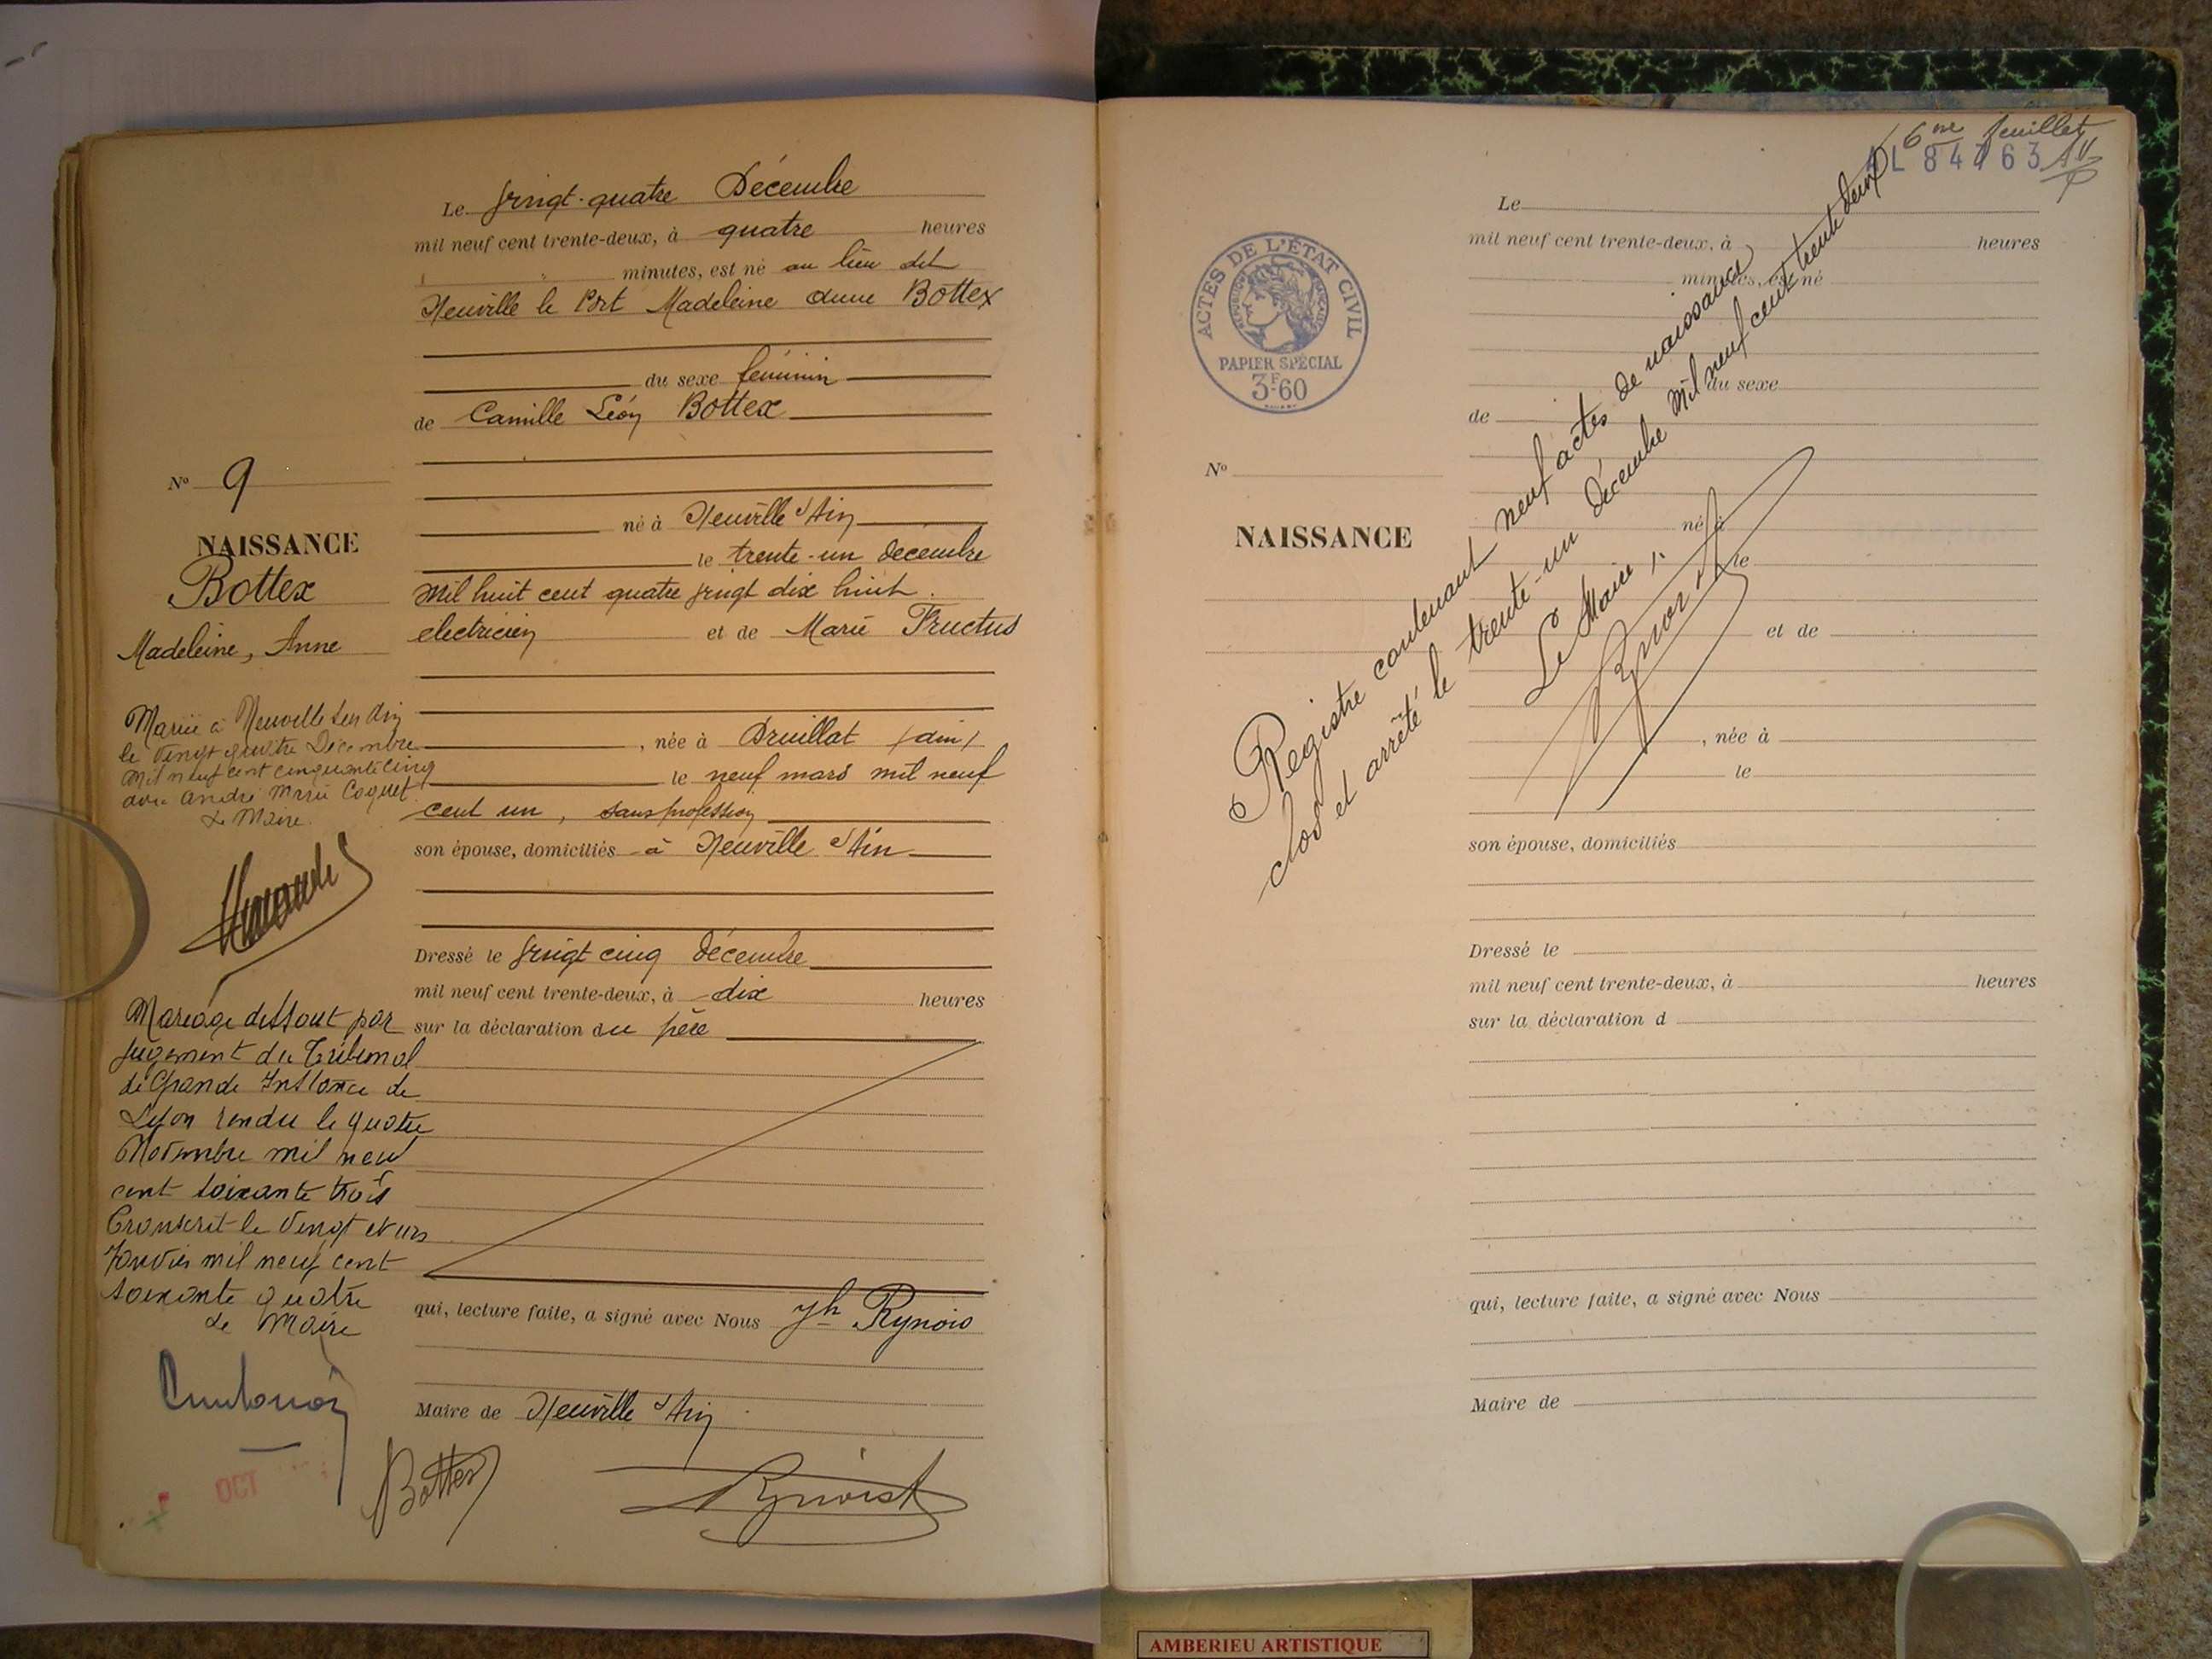 Le vingt-quatre Décembre
mil neuf cent trente-deux, à quatre heures
minutes, est né au lieu dit
Neuville le Port Madeleine Anne Bottex
du sexe féminin
de Camille Léon Bottex
né à Neuville s/Ain
le trente-un decembre
mil huit cent quatre vingt dix huit.
electricien et de Marie Fructus
, née à Druillat (Ain)
le neuf mars mil neuf
cent un, sans profession
son épouse, domiciliés à Neuville s/Ain
Dressé le vingt cinq décembre
mil neuf cent trente-deux, à dix heures
sur la déclaration du père
qui, lecture faite, a signé avec Nous Jh Rynois
Maire de Neuville s/Ain
Bottex
No 9
NAISSANCE
Bottex
Madeleine, Anne
Mariée à Neuville sur Ain
le Vingt quatre Décembre
Mil neuf cent cinquante cinq
avec André Marie Coquet
Le Maire.
Mariage dissout par
jugement du Tribunal
de Grande Instance de
Lyon rendu le quatre
Novembre mil neuf
cent soixante trois
Transcrit le Vingt et un
Janvier mil neuf cent
soixante quatre
Le Maire
OCT
6me feuillet
AL 84763
Le
mil neuf cent trente-deux, à heures
minutes, est né
du sexe
de
né à
le
et de
, née à
le
son épouse, domiciliés
Dressé le
mil neuf cent trente-deux, à heures
sur la déclaration d
qui, lecture faite, a signé avec Nous
Maire de
ACTES DE L'ÉTAT CIVIL
RÉPUBLIQUE FRANÇAISE
PAPIER SPÉCIAL
3F60
No
NAISSANCE
Registre contenant neuf actes de naissance
clos et arrêté le trente-un Décembre Mil neuf cent trente deux
Le Maire,
AMBERIEU ARTISTIQUE